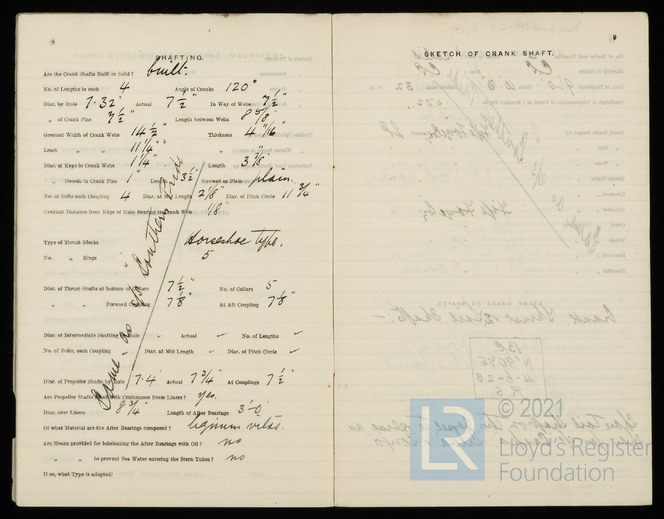 8
SHAFTING.
Are the Crank Shafts Built or Solid? built.
No. of Lengths in each 4 Angle of Cranks 120°
Diar. by Rule 7.32" Actual 7 1/2" In Way of Webs 7 1/2"
„ of Crank Pins 7 1/2" Length between Webs 8 5/8"
Greatest Width of Crank Webs 14 1/2" Thickness 4 9/16"
Least „ „ 11 1/4" „ "
Diar. of Keys in Crank Webs 1 1/4" Length 3 7/8"
„ Dowels in Crank Pins 1" Length 3 1/2" Screwed or Plain plain.
No. of Bolts each Coupling 4 Diar. at Mid Length 2 1/8" Diar. of Pitch Circle 11 3/4"
Greatest Distance from Edge of Main Bearing to Crank Web 1/8"
Type of Thrust Blocks Horseshoe type.
No. „ Rings 5
Diar. of Thrust Shafts at bottom of Collars 7 1/2" No. of Collars 5
„ „ Forward Coupling 7 7/8" At Aft Coupling 7 7/8"
Diar. of Intermediate Shafting by Rule Actual No. of Lengths
No. of Bolts, each Coupling Diar. at Mid Length Diar. of Pitch Circle
Diar. of Propeller Shafts by Rule 7.4 Actual 7 3/4" At Couplings 7 1/2"
Are Propeller Shafts fitted with Continuous Brass Liners? yes.
Diar. over Liners 8 3/4" Length of After Bearings 3'-0"
Of what Material are the After Bearings composed? lignum vitae.
Are Means provided for lubricating the After Bearings with Oil? no
„ „ to prevent Sea Water entering the Stern Tubes? no
If so, what Type is adopted?
Same as "Southern Pride"
9
SKETCH OF CRANK SHAFT.
© 2021
LR
Lloyd's Register
Foundation